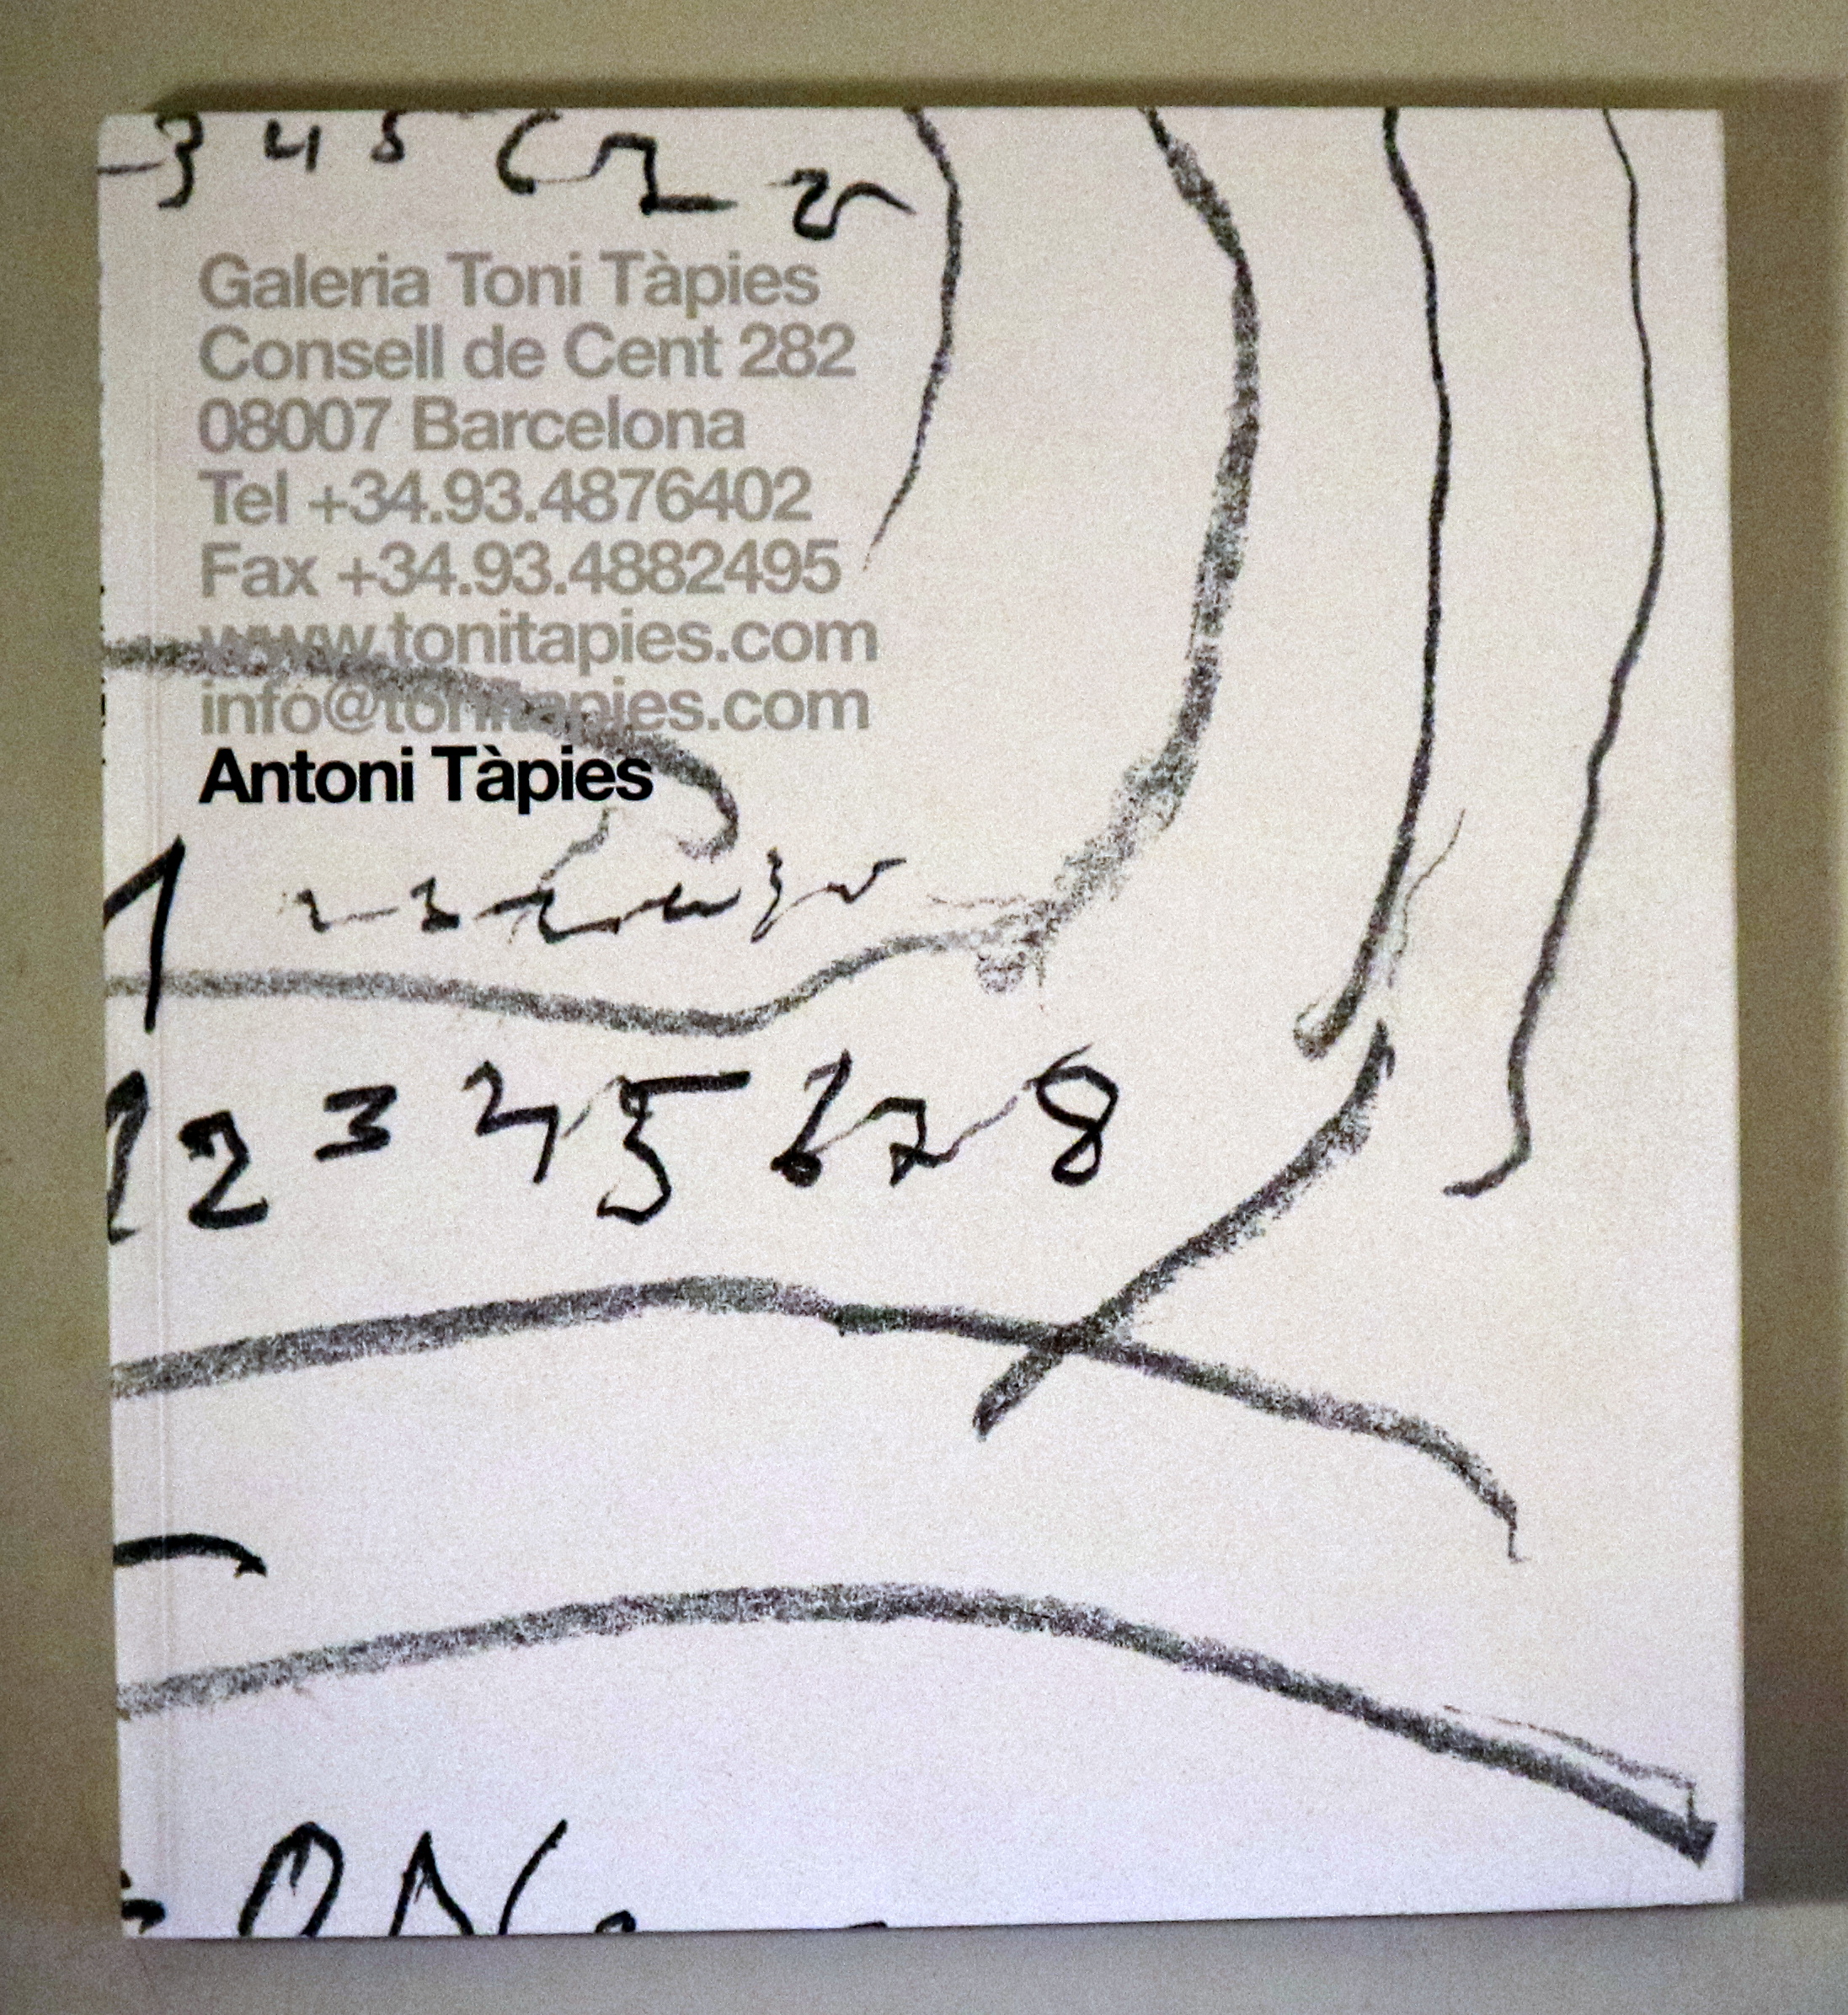 3 4 5
Galeria Toni Tàpies
Consell de Cent 282
08007 Barcelona
Tel +34.93.4876402
Fax +34.93.4882495
www.tonitapies.com
info@tonitapies.com
Antoni Tàpies
1
1 2 3 4 5 6 7 8